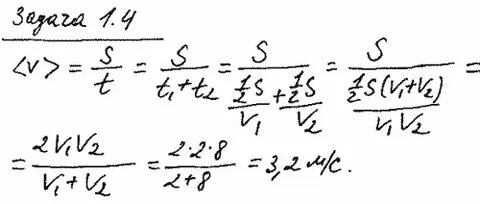 Задача 1.4
<v> = S/t = S/(t₁+t₂) = S/((½S)/V₁ + (½S)/V₂) = S/((½S(V₁+V₂))/(V₁V₂)) =
= 2V₁V₂/(V₁+V₂) = (2·2·8)/(2+8) = 3,2 м/с.